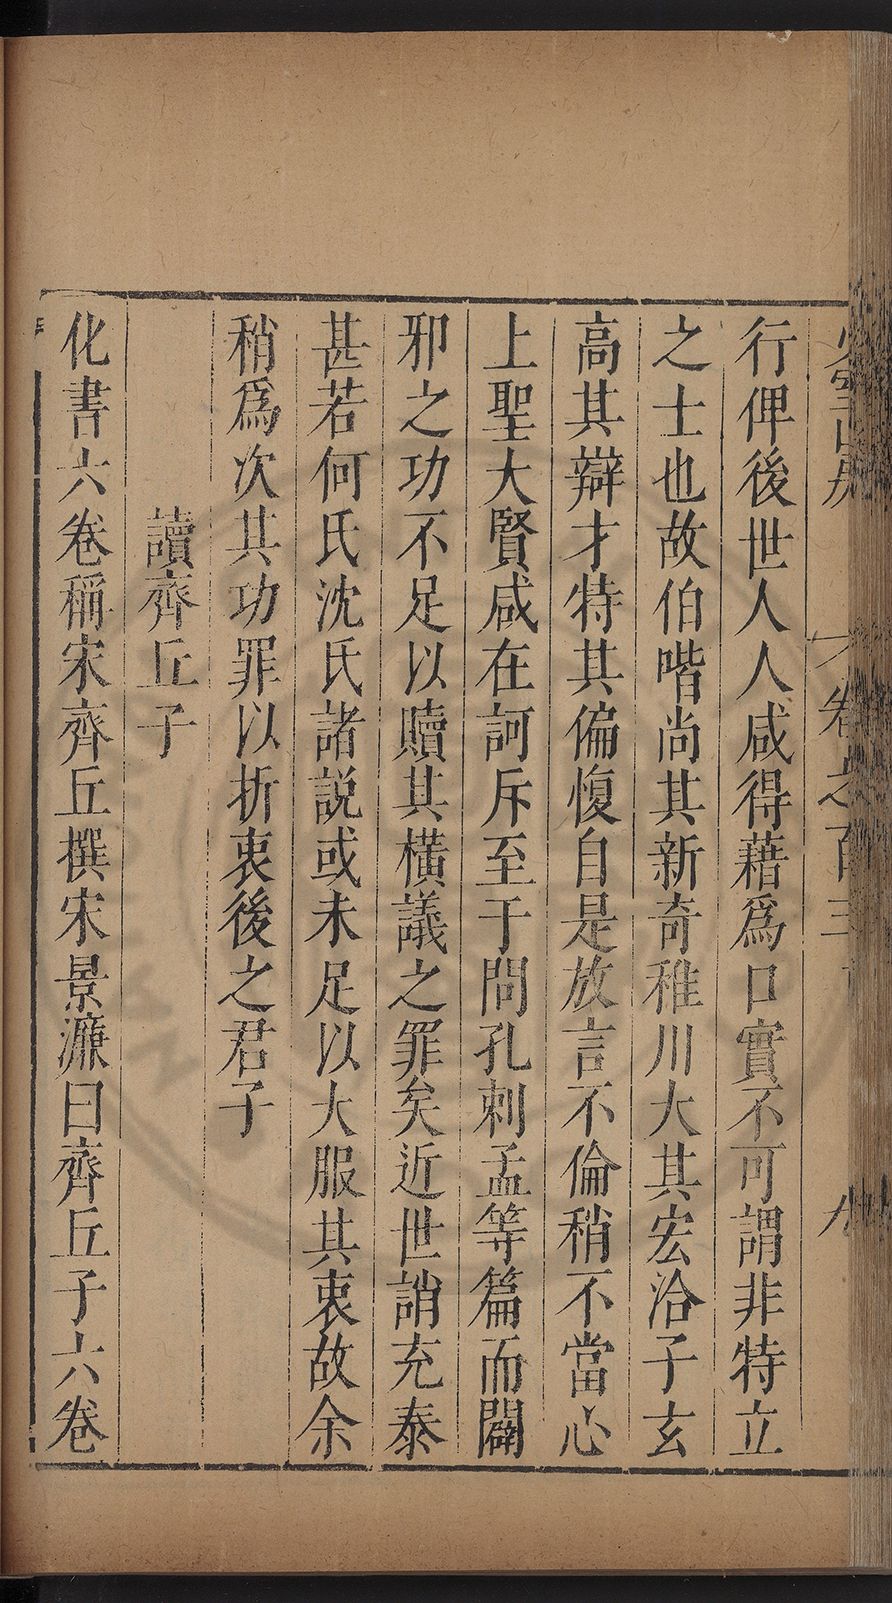 行俾後世人人咸得藉爲口實不可謂非特立
之士也故伯喈尚其新奇稚川大其宏洽子玄
高其辯才特其偏愎自是放言不倫稍不當心
上聖大賢咸在訶斥至于問孔刺孟等篇而闢
邪之功不足以贖其橫議之罪矣近世誚充泰
甚若何氏沈氏諸説或未足以大服其衷故余
稍爲次其功罪以折衷後之君子
讀齊丘子
化書六卷稱宋齊丘撰宋景濂曰齊丘子六卷